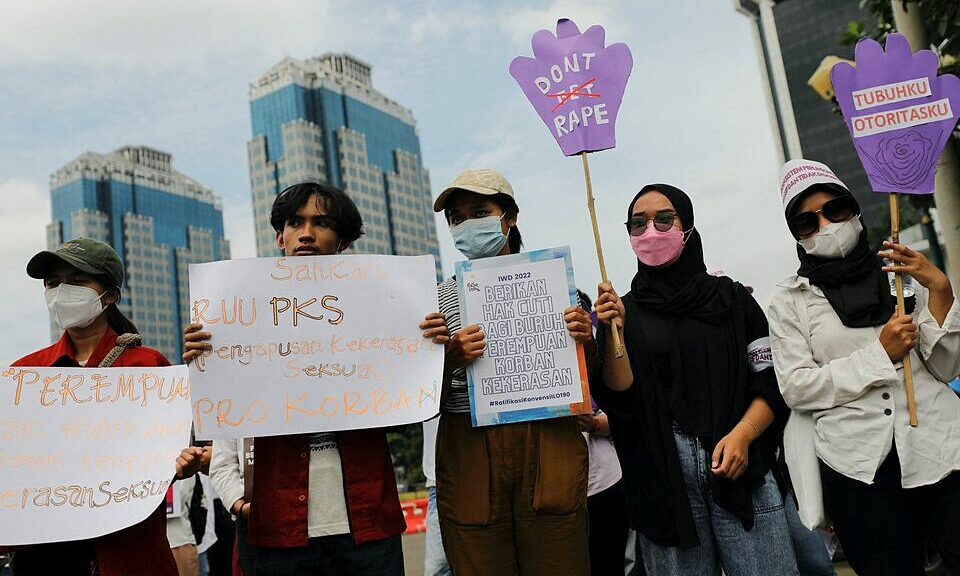 PEREMPUAN
Bebas
SAHKAN
RUU PKS
Pengapusan Kekerasan
Seksual
PRO KORBAN
IWD 2022
BERIKAN
HAK CUTI
BAGI BURUH
PEREMPUAN
KORBAN
KEKERASAN
#RatifikasiKonvensiILO190
DONT
GET
RAPE
TUBUHKU
OTORITASKU